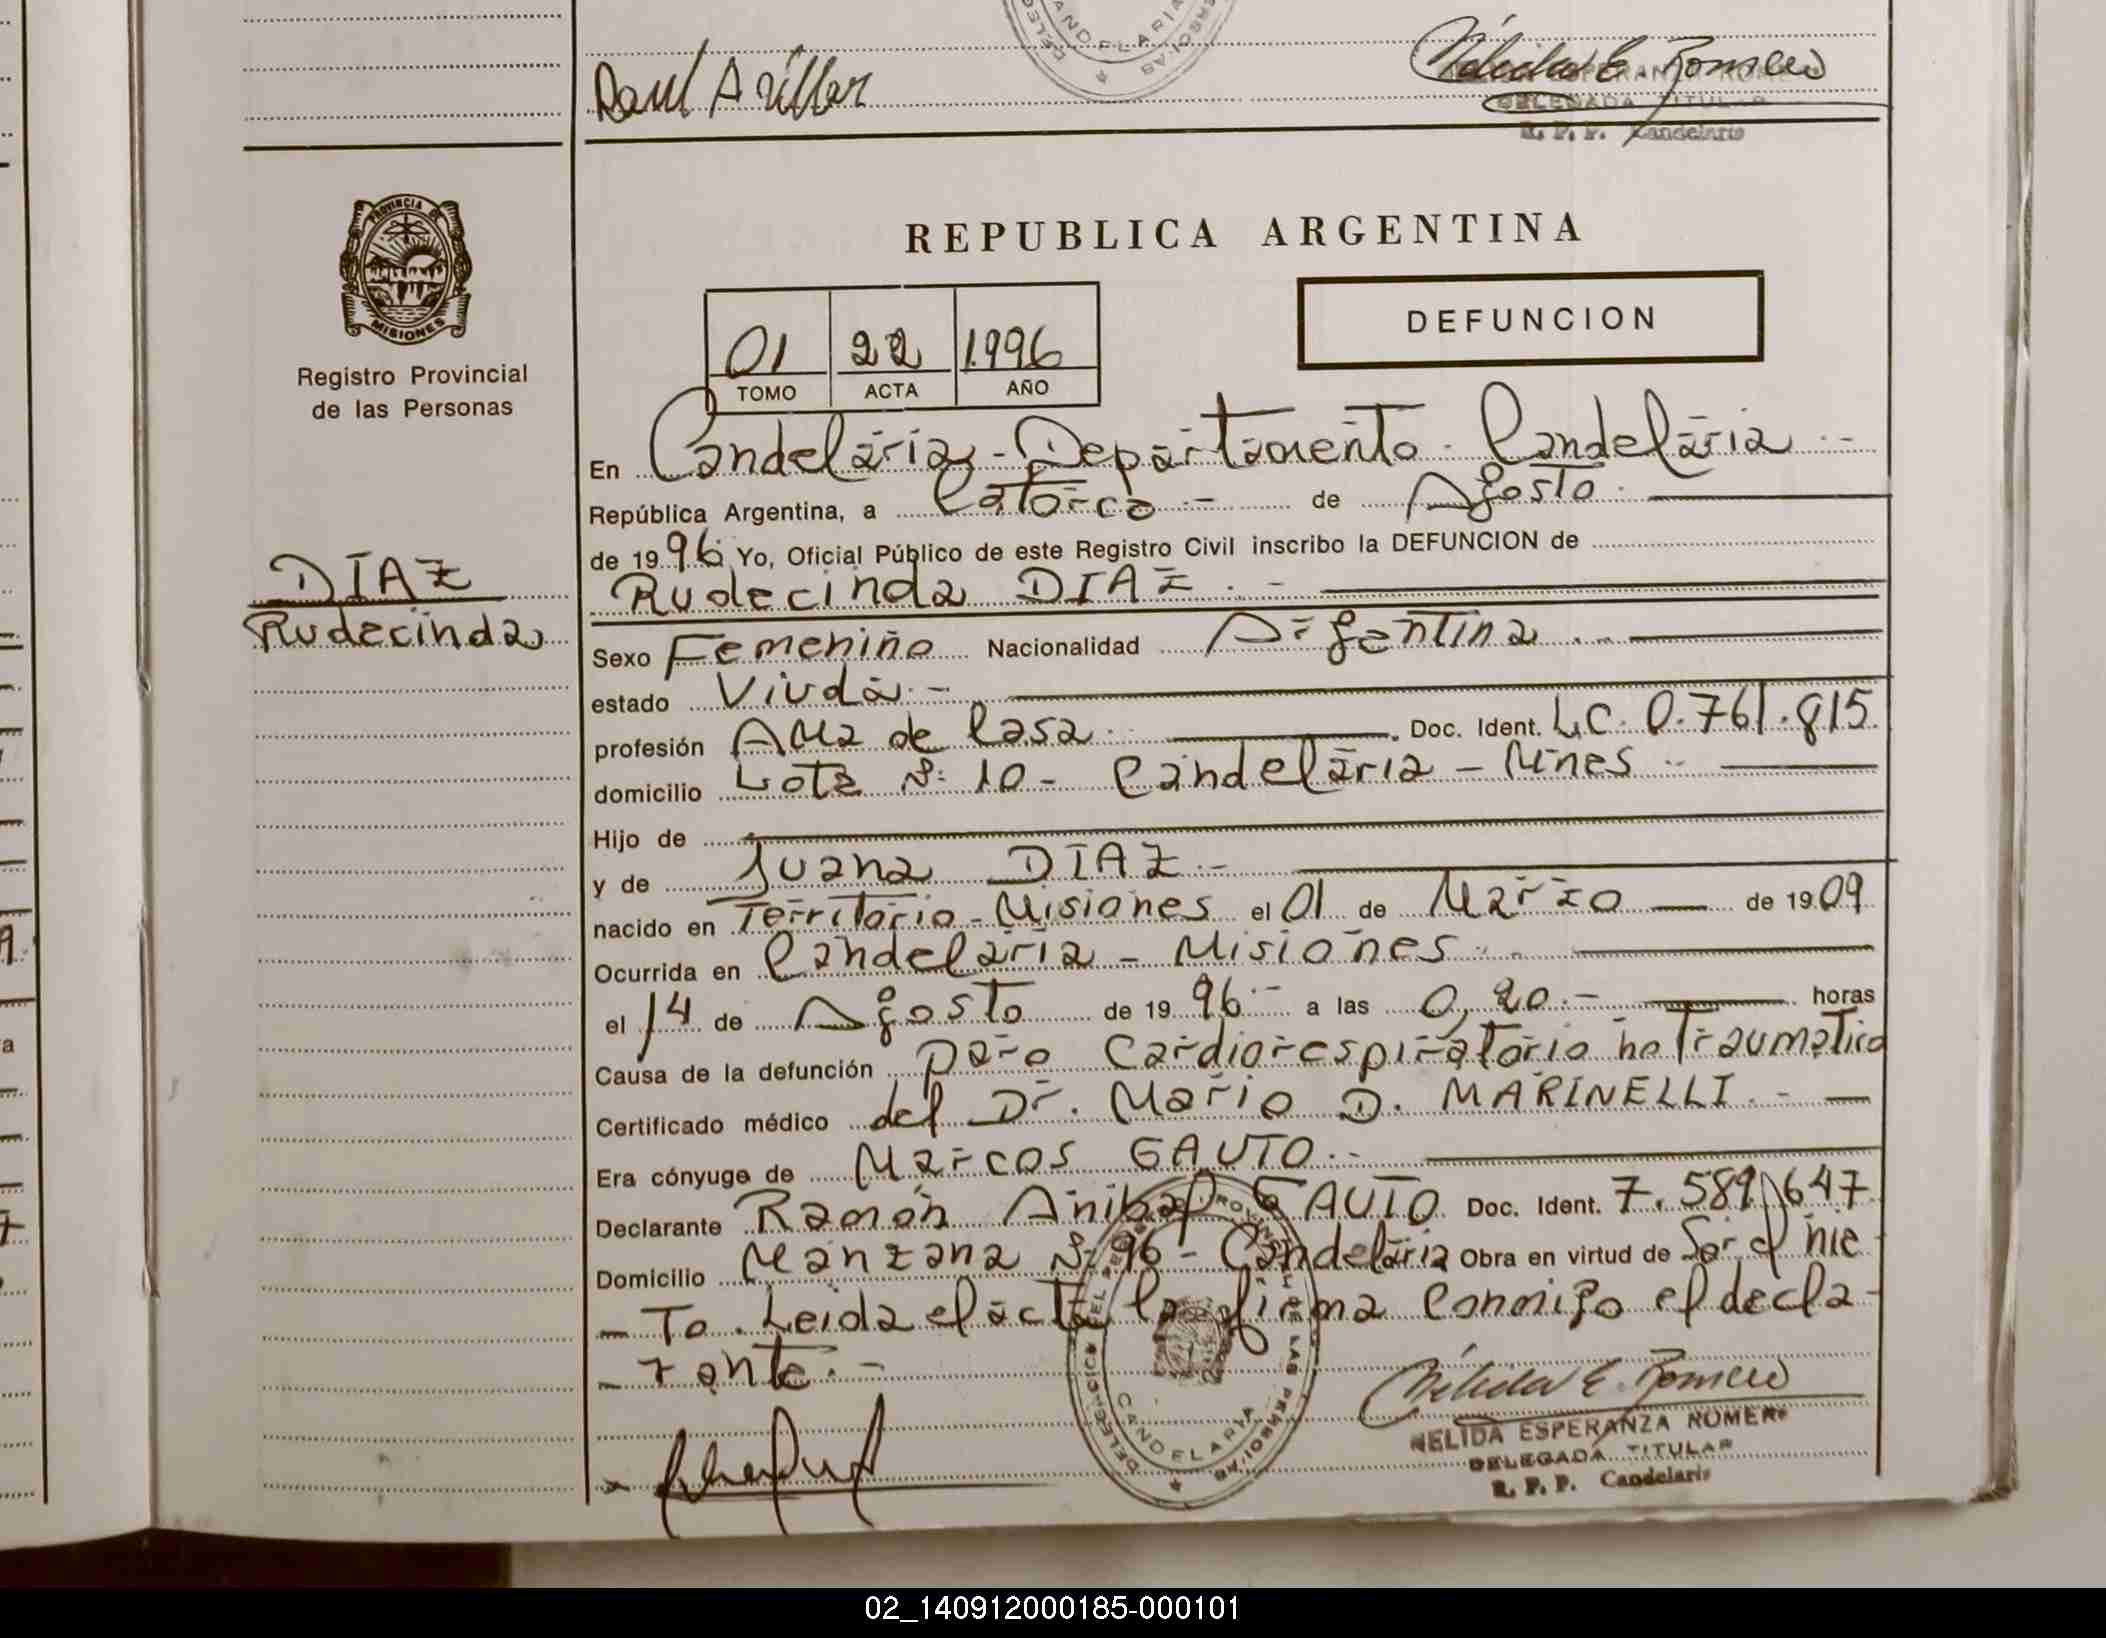 Raul A Villar
Nélida E. Romero
DELEGADA TITULAR
R. P. P. Candelaria
CANDELARIA
PROVINCIA DE
MISIONES
Registro Provincial
de las Personas
DÍAZ
Rudecinda
REPUBLICA ARGENTINA
DEFUNCION
01 22 1.996
TOMO ACTA AÑO
En Candelaria - Departamento Candelaria.-
República Argentina, a Catorce.- de Agosto.
de 1996 Yo, Oficial Público de este Registro Civil inscribo la DEFUNCION de
Rudecinda DIAZ.-
Sexo Femenino Nacionalidad Argentina..-
estado Viuda.-
profesión Ama de Casa. Doc. Ident. L.C. 0.761.815.
domicilio Lote Nº 10 - Candelaria - Mnes.-
Hijo de
y de Juana DIAZ.-
nacido en Territorio - Misiones el 01 de Marzo de 1909
Ocurrida en Candelaria - Misiones.
el 14 de Agosto de 1996.- a las 0,20.- horas
Causa de la defunción paro cardiorespiratorio no traumatico
Certificado médico del Dr. Mario D. MARINELLI.-
Era cónyuge de Marcos GAUTO.-
Declarante Ramón Anibal GAUTO Doc. Ident. 7.589.647
Domicilio Manzana Nº 96 - Candelaria Obra en virtud de Ser el nie
- To. Leida el acta la firma conmigo el decla-
- rante.-
CANDELARIA
Nélida E. Romero
NELIDA ESPERANZA ROMERO
DELEGADA TITULAR
R. P. P. Candelaria
02_140912000185-000101